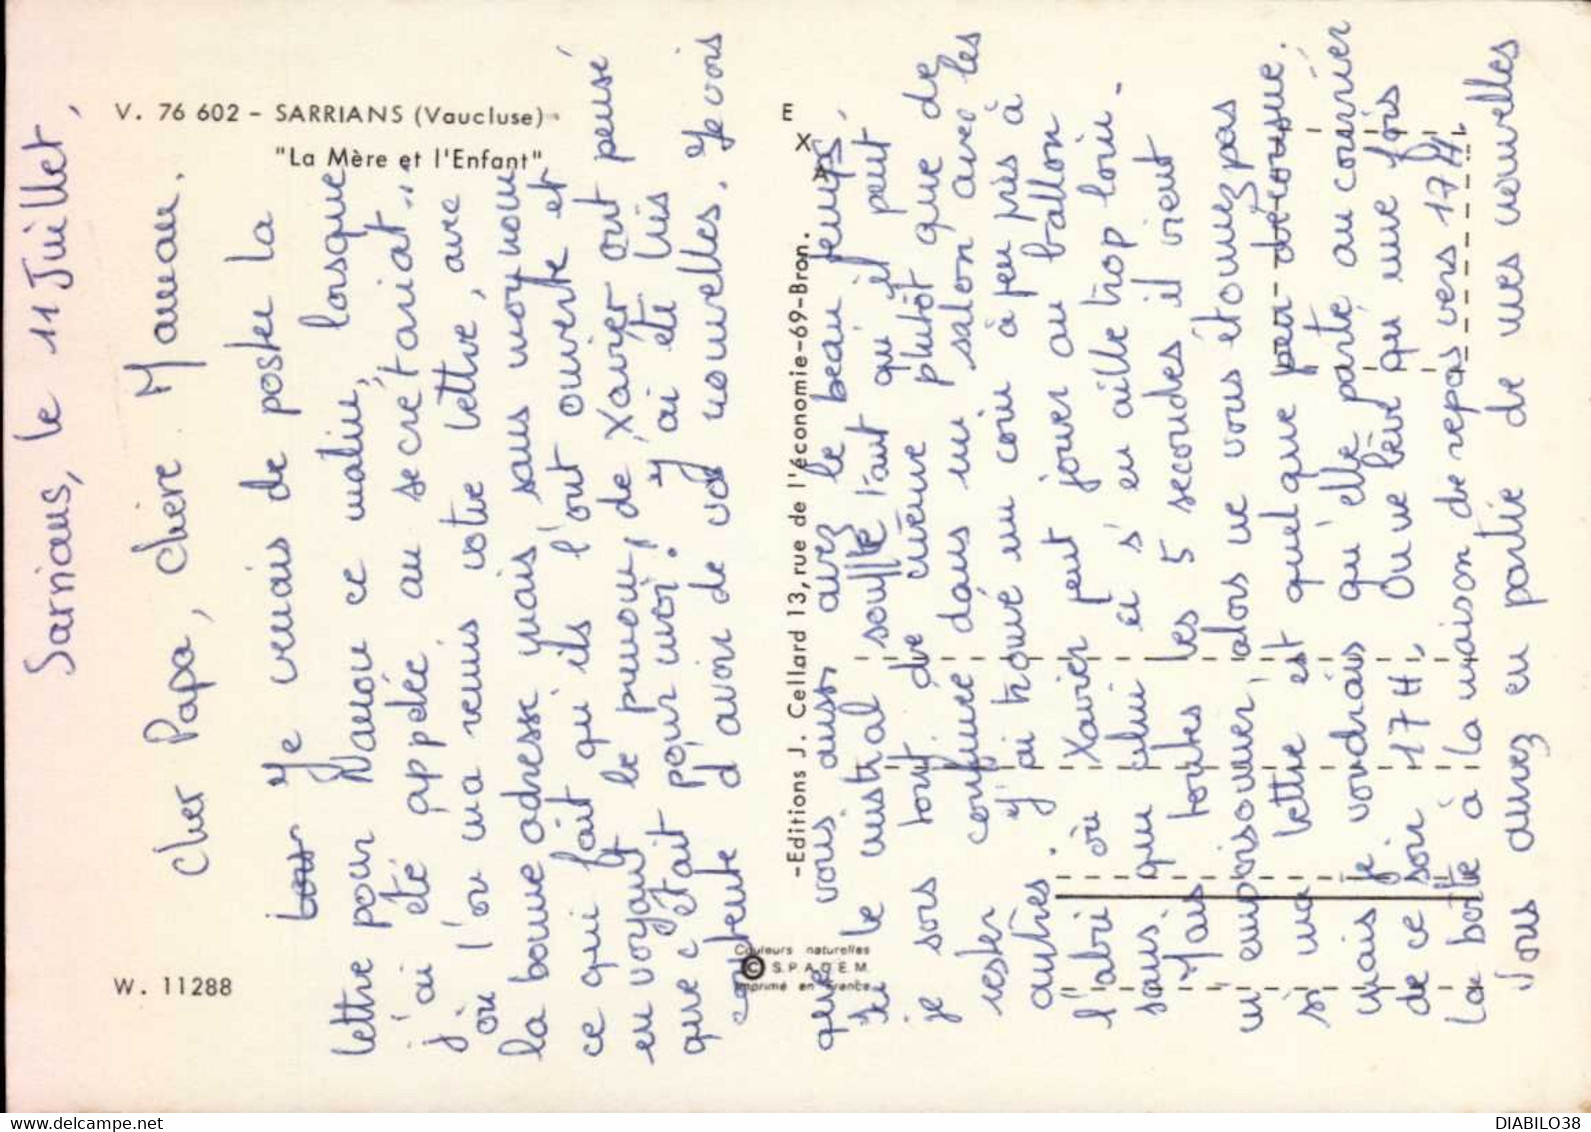 Sarrians, le 11 Juillet,
cher Papa, chère Maman.
Je venais de poster la
lettre pour Manou ce matin, lorsque
j'ai été appelée au secrétariat..
où l'on m'a remis votre lettre, avec
la bonne adresse mais sans mon nom
ce qui fait qu'ils l'ont ouverte et
en voyant le prénom, de Xavier ont pensé
que c'était pour moi! J'ai été très
contente d'avoir de vos nouvelles. Je vois
que vous aussi avez le beau temps,
ici le mistral souffle tant qu'il peut
je sors tout de même plutôt que de
rester confinée dans un salon avec les
autres. J'ai trouvé un coin à peu près à
l'abri où Xavier peut jouer au ballon
sans que celui ci s'en aille trop loin.
Mais toutes les 5 secondes il vient
m'empoisonner, alors ne vous étonnez pas
si ma lettre est quelque peu décousue.
mais je voudrais qu'elle parte au courrier
de ce soir 17 H, On ne lève qu'une fois
la boîte à la maison de repos vers 17 H.
Vous aurez en partie de mes nouvelles
V. 76 602 - SARRIANS (Vaucluse)
"La Mère et l'Enfant"
W. 11288
EX
-Editions J. Cellard 13, rue de l'économie-69-Bron.
Couleurs naturelles
© S.P.A.D.E.M.
Imprimé en France
DIABILO38